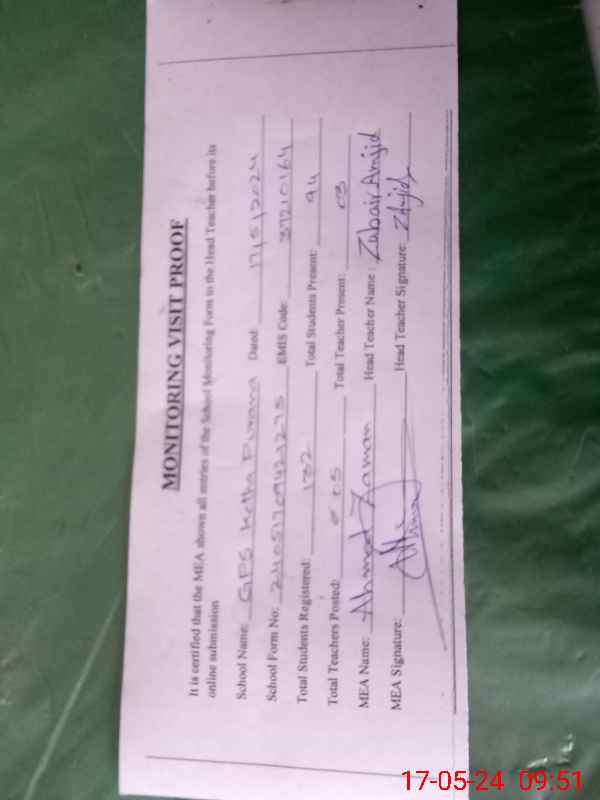 MONITORING VISIT PROOF
It is certified that the MEA shown all entries of the School Monitoring Form to the Head Teacher before its
online submission
School Name: GPS Kotha Purana Dated: 17/5/2024
School Form No: EMIS Code: 37210164
Total Students Registered: 132 Total Students Present: 94
Total Teachers Posted: 05 Total Teacher Present: 03
MEA Name: Ahmad Zaman Head Teacher Name: Zubair Amjid
MEA Signature: Head Teacher Signature: ZAmjid
17-05-24 09:51